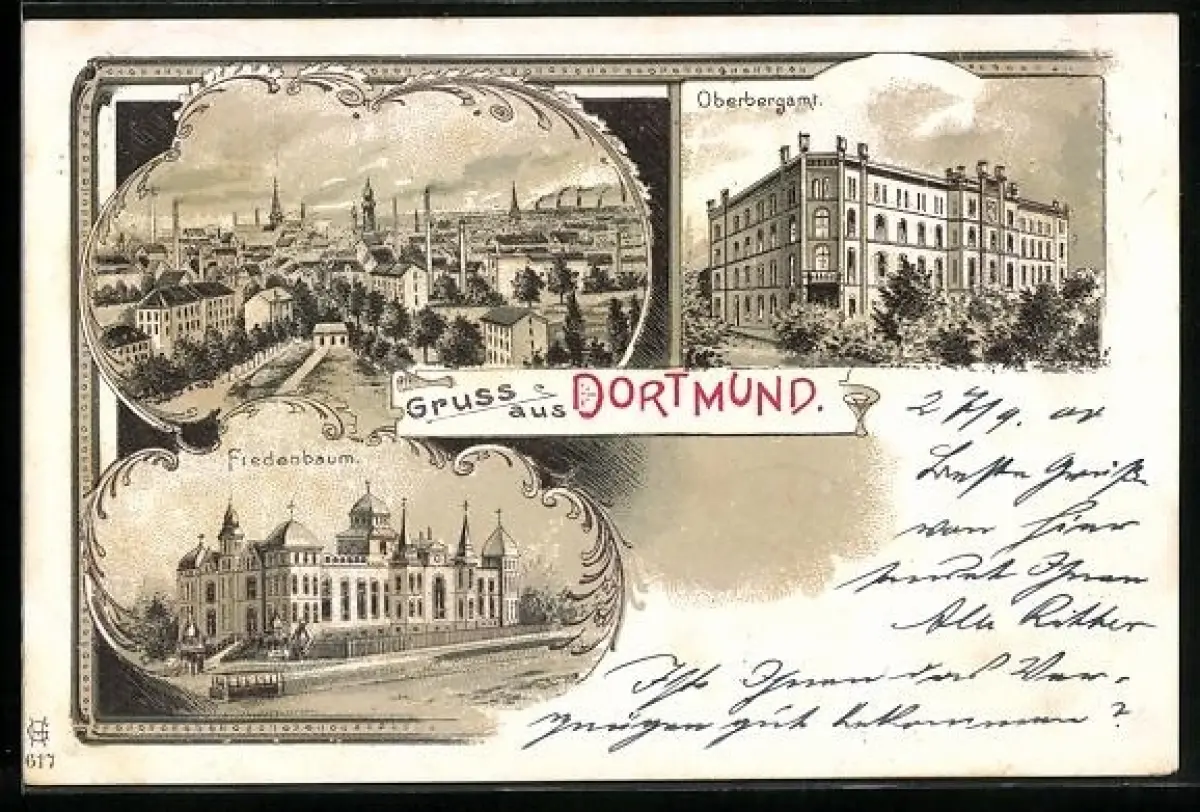 Oberbergamt.
Gruss aus DORTMUND.
Fredenbaum.
Beste Grüße
von hier
sendet Ihnen
Ritter
Ist Ihnen das Ver-
gnügen gut bekommen?
617